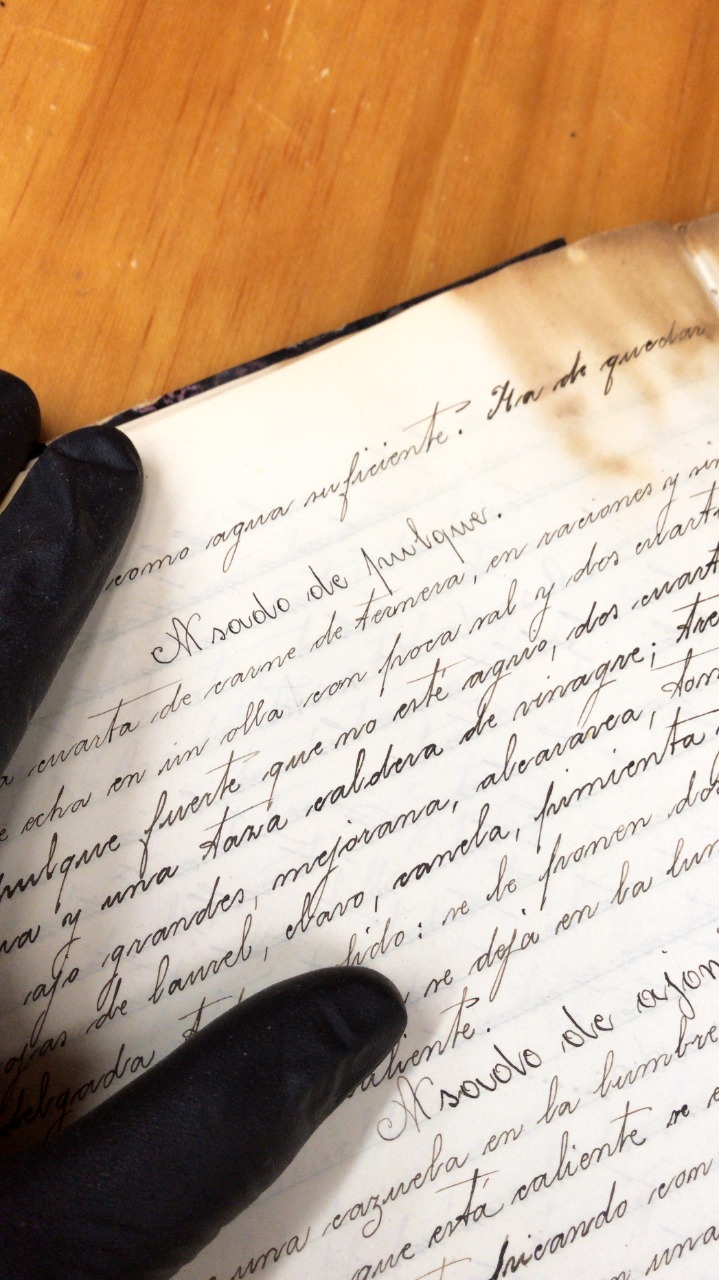 como agua suficiente. Ha de quedar
Asado de pulque.
cuarta de carne de ternera, en raciones y sin
echa en un olla con poca sal y dos cuart
pulque fuerte que no esté agrio, dos cuart
va y una taza caldera de vinagre; tre
ajo grandes, mejorana, alcaravea, tom
ojas de laurel, clavo, canela, pimienta
delgada ido: se le ponen dos
se deja en la lum
caliente.
Asado de ajon
una cazuela en la lumbre
que está caliente se e
picando con
n una